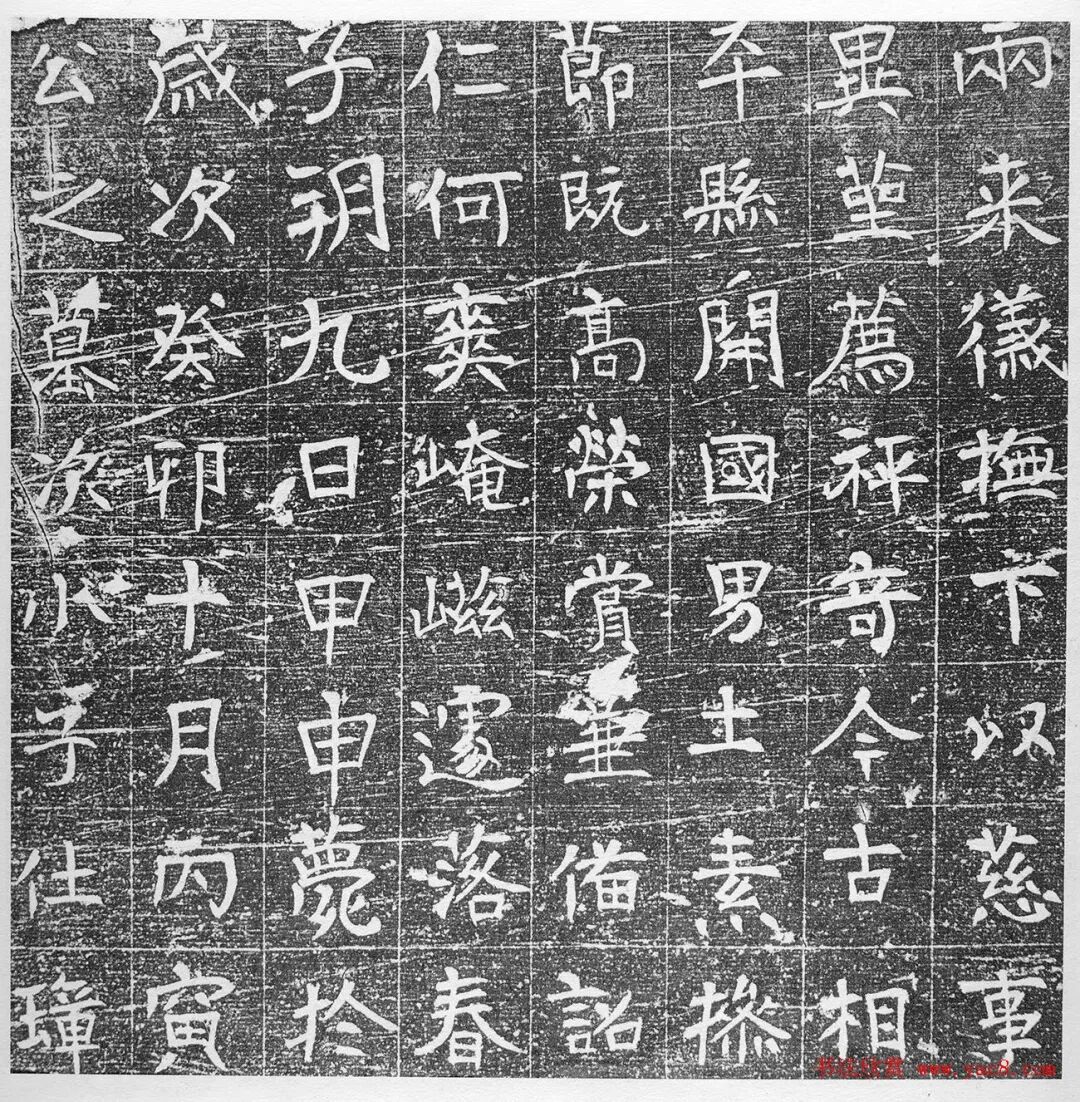 兩来儀撫下以慈事
異莖薦祥音今古相
平縣開國男土素摻
節既高榮賞並備詔
仁何奕崦嵫遽落春
子朔九日甲申薨於
歲次癸卯十月丙寅
公之墓次水子仕瑋
www.yac8.com